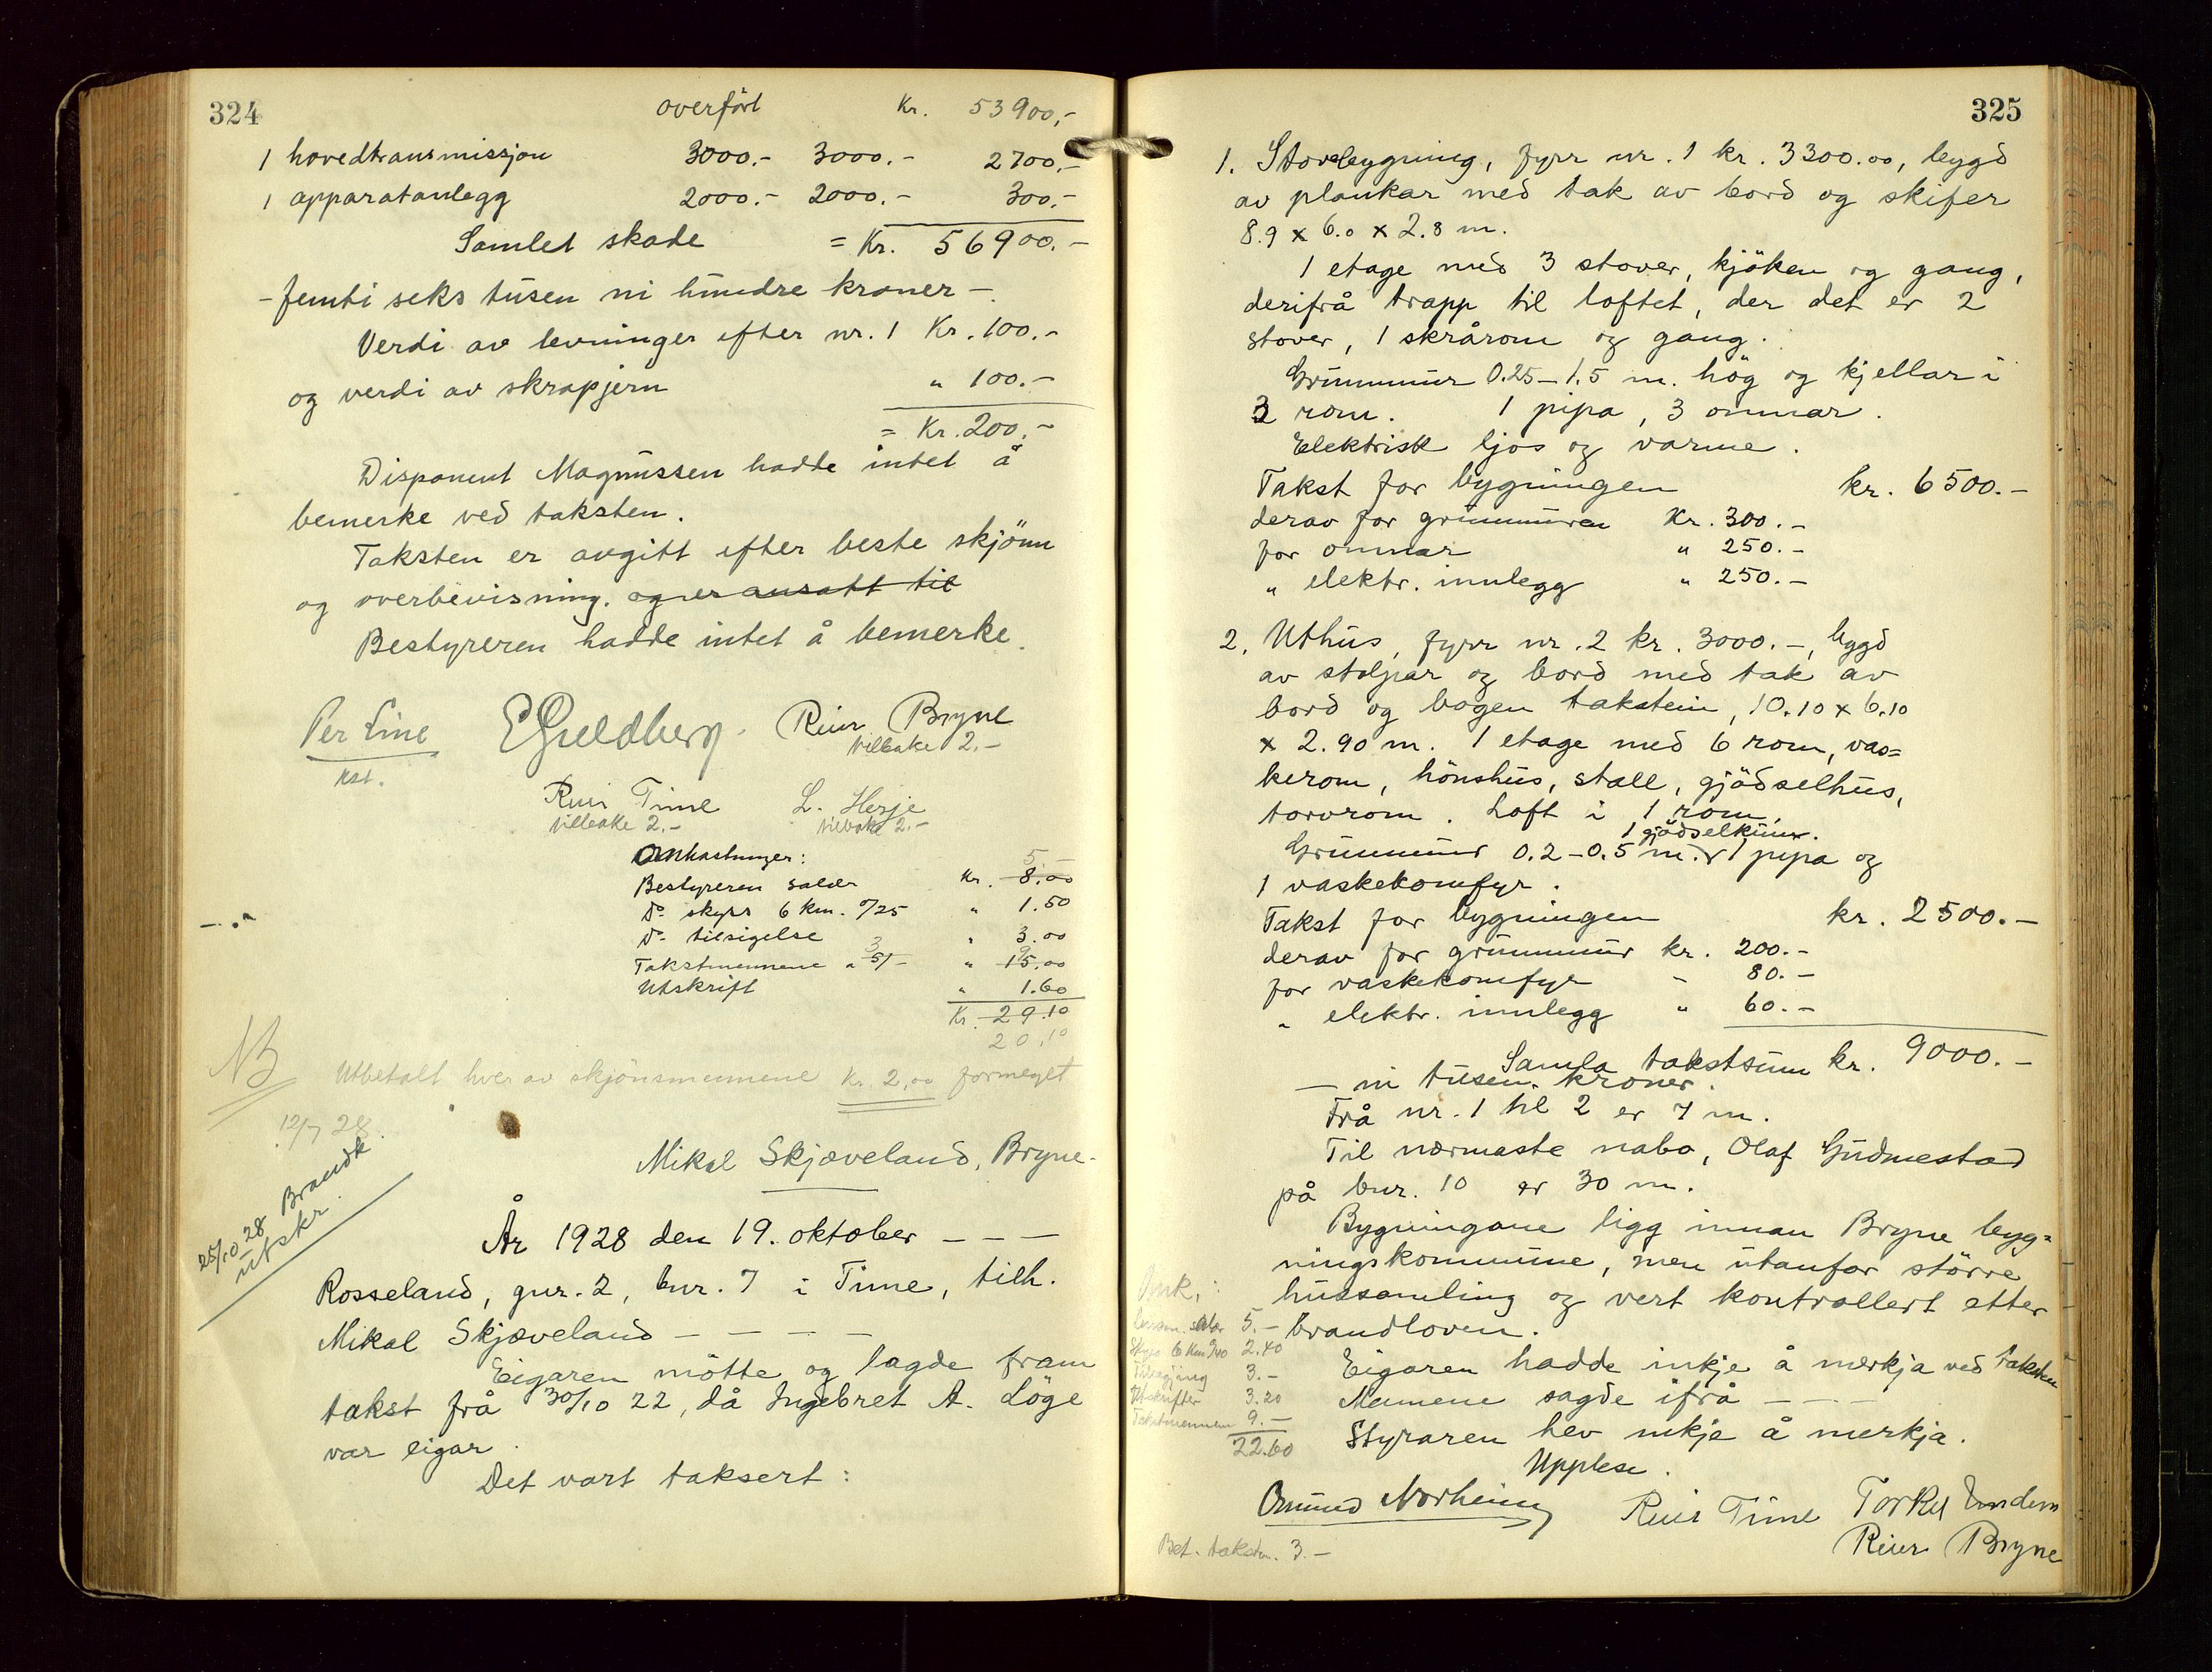 324
overfört Kr. 53900,-
1 hovedtransmissjon 3000.- 3000.- 2700.-
1 apparatanlegg 2000.- 2000.- 300.-
Samlet skade = Kr. 56900.-
- femti seks tusen ni hundre kroner -.
Verdi av levninger efter nr. 1 Kr. 100.-
og verdi av skrapjern " 100.-
= Kr. 200.-
Disponent Magnussen hadde intet å
bemerke ved taksten.
Taksten er avgitt efter beste skjönn
og overbevisning. og er ansatt til
Bestyreren hadde intet å bemerke.
Per Line Reier Bryne
kst. tilbake 2.-
Reier Time L. Herje
tilbake 2.- tilbake 2.-
Omkostninger: 5.-
Bestyreren salær Kr. 8.00
Do skyss 6 km. °/25 " 1.50
Do tilsigelse " 3.00
3 9
Takstmennene a 5/- " 15.00
Utskrift " 1.60
Kr. 29.10
20.10
NB Utbetalt hver av skjönsmennene Kr. 2,00 formeget
12/7 28.
Mikal Skjæveland, Bryne.
25/10 28 Brandk
utskr.
År 1928 den 19. oktober - - -
Rosseland, gnr. 2, bnr. 7 i Time, tilh.
Mikal Skjæveland - - - -
Eigaren mötte og lagde fram
takst frå 30/10 22, då Ingebret A. Löge
var eigar.
Det vart taksert:
325
1. Stovebygning, fyrr nr. 1 kr. 3300.00, bygd
av plankar med tak av bord og skifer
8.9 x 6.0 x 2.8 m.
1 etage med 3 stover, kjöken og gang,
derifrå trapp til loftet, der det er 2
stover, 1 skrårom og gang.
Grunnmur 0.25-1.5 m. hög og kjellar i
3 rom. 1 pipa, 3 omnar.
Elektrisk ljos og varme.
Takst for bygningen kr. 6500.-
derav for grunnmuren Kr. 300.-
for omnar " 250.-
" elektr. innlegg " 250.-
2. Uthus, fyrr nr. 2 kr. 3000.-, bygd
av stolpar og bord med tak av
bord og bogen takstein, 10.10 x 6.10
x 2.90 m. 1 etage med 6 rom, vas=
kerom, hönshus, stall, gjödselhus,
torvrom. Loft i 1 rom.
1 gjödselkum.
Grunnmur 0.2-0.5 m. 1 pipa og
1 vaskekomfyr.
Takst for bygningen kr. 2500.-
derav for grunnmur kr. 200.-
for vaskekomfyr - 80.-
" elektr. innlegg " 60.-
Samla takstsum kr. 9000.-
- ni tusen kroner.
Frå nr. 1 til 2 er 7 m.
Til nærmaste nabo, Olaf Gudmestad
på bnr. 10 er 30 m.
Bygningane ligg innan Bryne byg=
ningskommune, men utanfor större
hussamling og vert kontrollert etter
brandloven.
Eigaren hadde inkje å merkja ved taksten
Mennene sagde ifrå - - -
Styraren hev inkje å merkja.
Upplese.
Omk.:
salær 5.-
Skyss 6 km °/40 2.40
Tilsegjing 3.-
Utskrifter 3.20
Takstmennene 9.-
22.60
Osmund Norheim Reier Time Torkel
Reier Bryne
Bet. takstm. 3.-